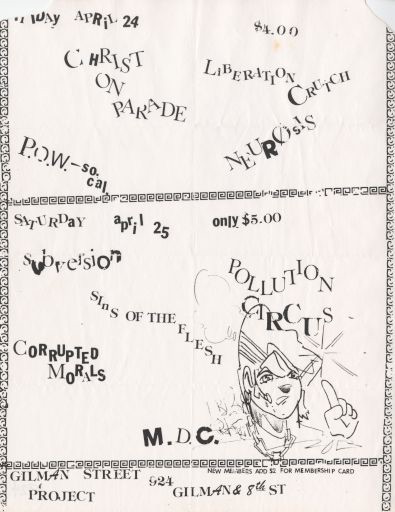 FRIDAY APRIL 24
$4.00
CHRIST
ON
PARADE
LIBERATION
CRUTCH
NEUROSIS
P.O.W.-SO.
cal
SATURDaY april 25 only $5.00
SubVersion
POLLUTION
CIRCUS
SInS OF THE
FLESH
CORRUPTED
MORALS
M.D.C.
NEW MEMBERS ADD $2 FOR MEMBERSHIP CARD
GILMAN STREET
PROJECT
924
GILMAN & 8th ST